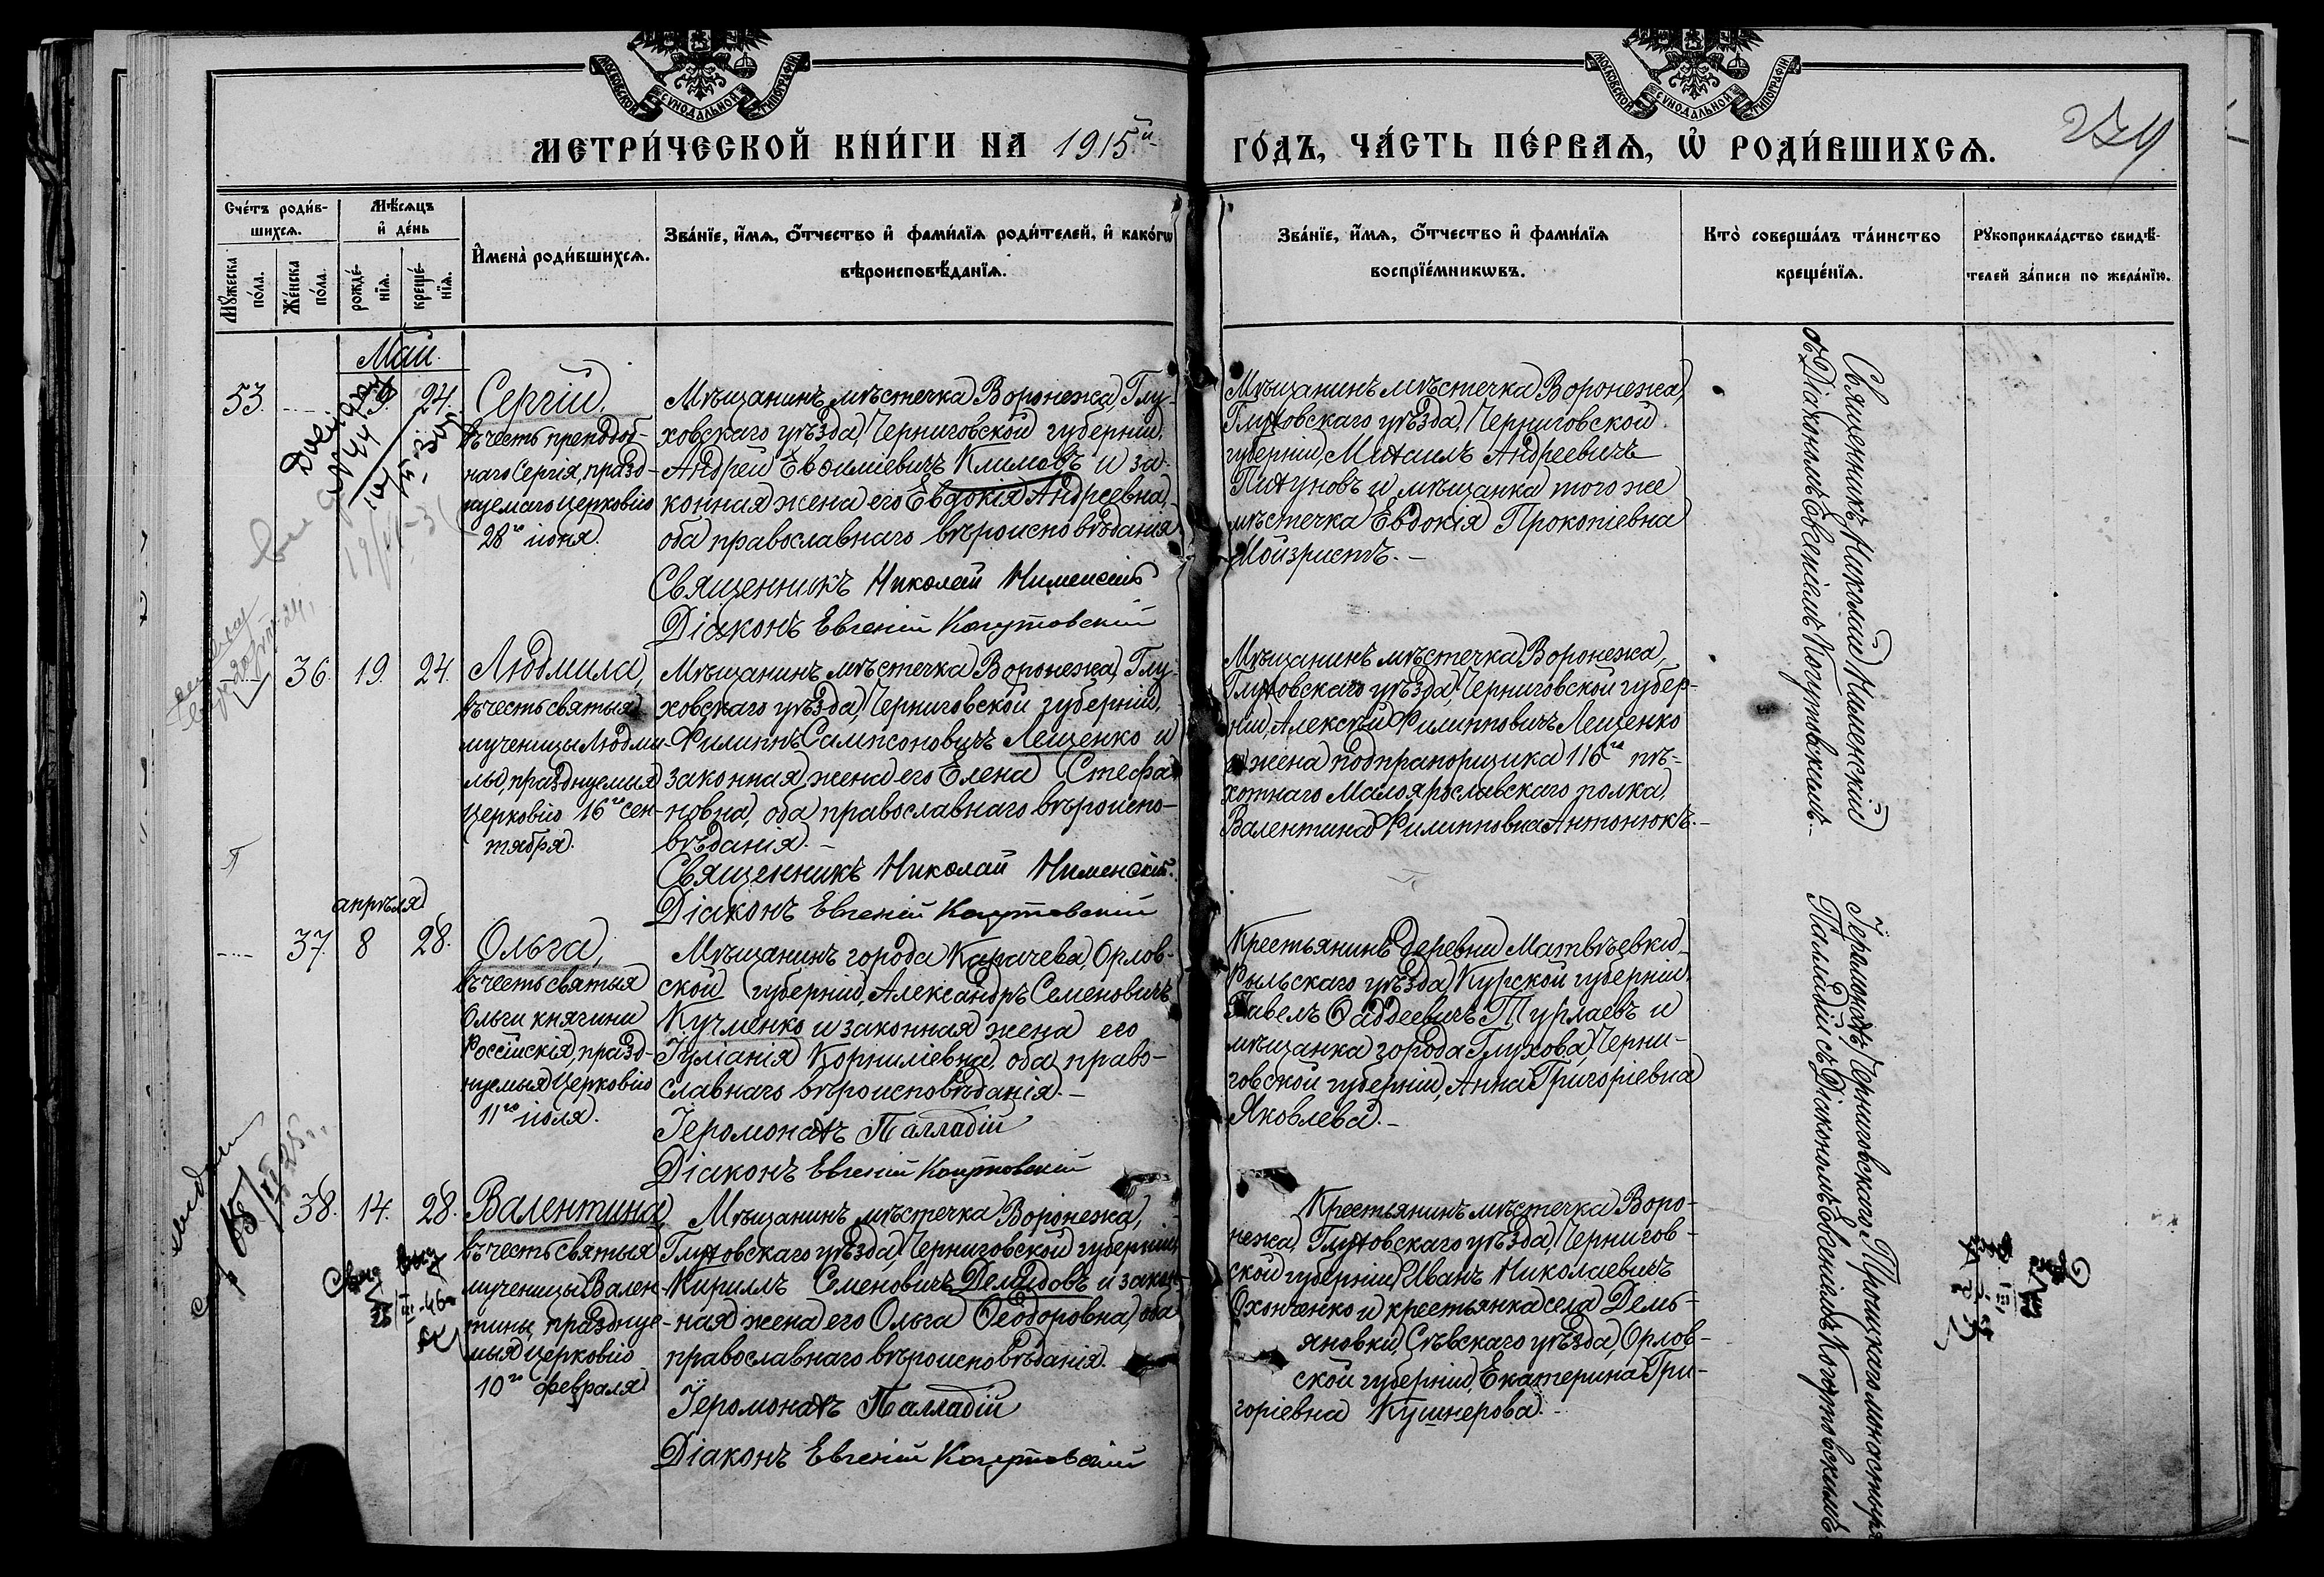 МОСКОВСКОЙ СУНОДАЛЬНОЙ ТИПОГРАФІИ
МОСКОВСКОЙ СУНОДАЛЬНОЙ ТИПОГРАФІИ
МЕТРИ́ЧЕСКОЙ КНИ́ГИ НА 1915й
ГО́ДЪ, ЧА́СТЬ ПЕ́РВАѦ, Ѡ҆ РОДИ́ВШИХСѦ.
Сче́тъ роди́в-
шихсѧ.
Мꙋжеска
по́ла.
Же́нска
по́ла.
Мѣ́сѧцъ
и҆ де́нь
рожде́-
нїѧ.
креще́-
нїѧ.
И҆мена̀ роди́вшихсѧ.
Зва́нїе, и҆́мѧ, ѻ҆́тчество и҆ фами́лїѧ роди́телей, и҆ како́гѡ
вѣроисповѣ́данїѧ.
Зва́нїе, и҆́мѧ, ѻ҆́тчество и҆ фами́лїѧ
воспрїе́мникѡвъ.
Кто̀ соверша́лъ та́инство
креще́нїѧ.
Рꙋкоприкла́дство свидѣ́-
телей за́писи по жела́нїю.
Май.
53.
24.
Сергій,
въ честь преподоб-
наго Сергія, празд-
нуемаго Церковію
28го іюня.
Мѣщанинъ мѣстечка Воронежа, Глу-
ховскаго уѣзда, Черниговской губерніи,
Андрей Евѳиміевичъ Климовъ и за-
конная жена его Евдокія Андреевна,
оба православнаго вѣроисповѣданія
Священникъ Николай Нименскій
Діаконъ Евгеній Когутовскій
Мѣщанинъ мѣстечка Воронежа,
Глуховскаго уѣзда, Черниговской
губерніи, Михаилъ Андреевичъ
Пихуновъ и мѣщанка того же
мѣстечка Евдокія Прокопіевна
Священникъ Николай Нименскій
съ Діакономъ Евгеніемъ Когутовскимъ.
36.
19.
24.
Людмила,
въ честь святыя
мученицы Людми-
лы, празднуемыя
Церковію 16го сен-
тября.
Мѣщанинъ мѣстечка Воронежа, Глу-
ховскаго уѣзда, Черниговской губерніи,
Филиппъ Сампсоновичъ Лещенко и
законная жена его Елена Стефа-
новна, оба православнаго вѣроиспо-
вѣданія.
Священникъ Николай Нименскій.
Діаконъ Евгеній Когутовскій
Мѣщанинъ мѣстечка Воронежа,
Глуховскаго уѣзда, Черниговской губер-
ніи, Алексѣй Филипповичъ Лещенко
и жена подпрапорщика 116го пѣ-
хотнаго Малоярославскаго полка,
Валентина Филипповна Антонюкъ.
апрѣля
37.
8
28.
Ольга,
въ честь святыя
Ольги княгини
Россійскія, празд-
нуемыя Церковію
11го іюля.
Мѣщанинъ города Карачева, Орлов-
ской губерніи, Александръ Семеновичъ
Кучменко и законная жена его
Іуліанія Корниліевна, оба право-
славнаго вѣроисповѣданія.
Іеромонахъ Палладій
Діаконъ Евгеній Когутовскій
Крестьянинъ деревни Матвѣевки,
Рыльскаго уѣзда, Курской губерніи,
Павелъ Ѳаддеевичъ Турлаевъ и
мѣщанка города Глухова, Черни-
говской губерніи, Анна Григоріевна
Яковлева.
Іеромонахъ Черниговскаго Троицкаго монастыря
Палладій съ Діакономъ Евгеніемъ Когутовскимъ
38.
14.
28.
Валентина,
въ честь святыя
мученицы Вален-
тины, празднуе-
мыя Церковію
10го февраля
Мѣщанинъ мѣстечка Воронежа,
Глуховскаго уѣзда, Черниговской губерніи,
Кириллъ Семеновичъ Демидовъ и закон-
ная жена его Ольга Ѳеодоровна, оба
православнаго вѣроисповѣданія.
Іеромонахъ Палладій
Діаконъ Евгеній Когутовскій
Крестьянинъ мѣстечка Воро-
нежа, Глуховскаго уѣзда, Чернигов-
ской губерніи, Иванъ Николаевичъ
Охонченко и крестьянка села Демь-
яновки, Сѣвскаго уѣзда, Орлов-
ской губерніи, Екатерина Гри-
горіевна Кушнерова.